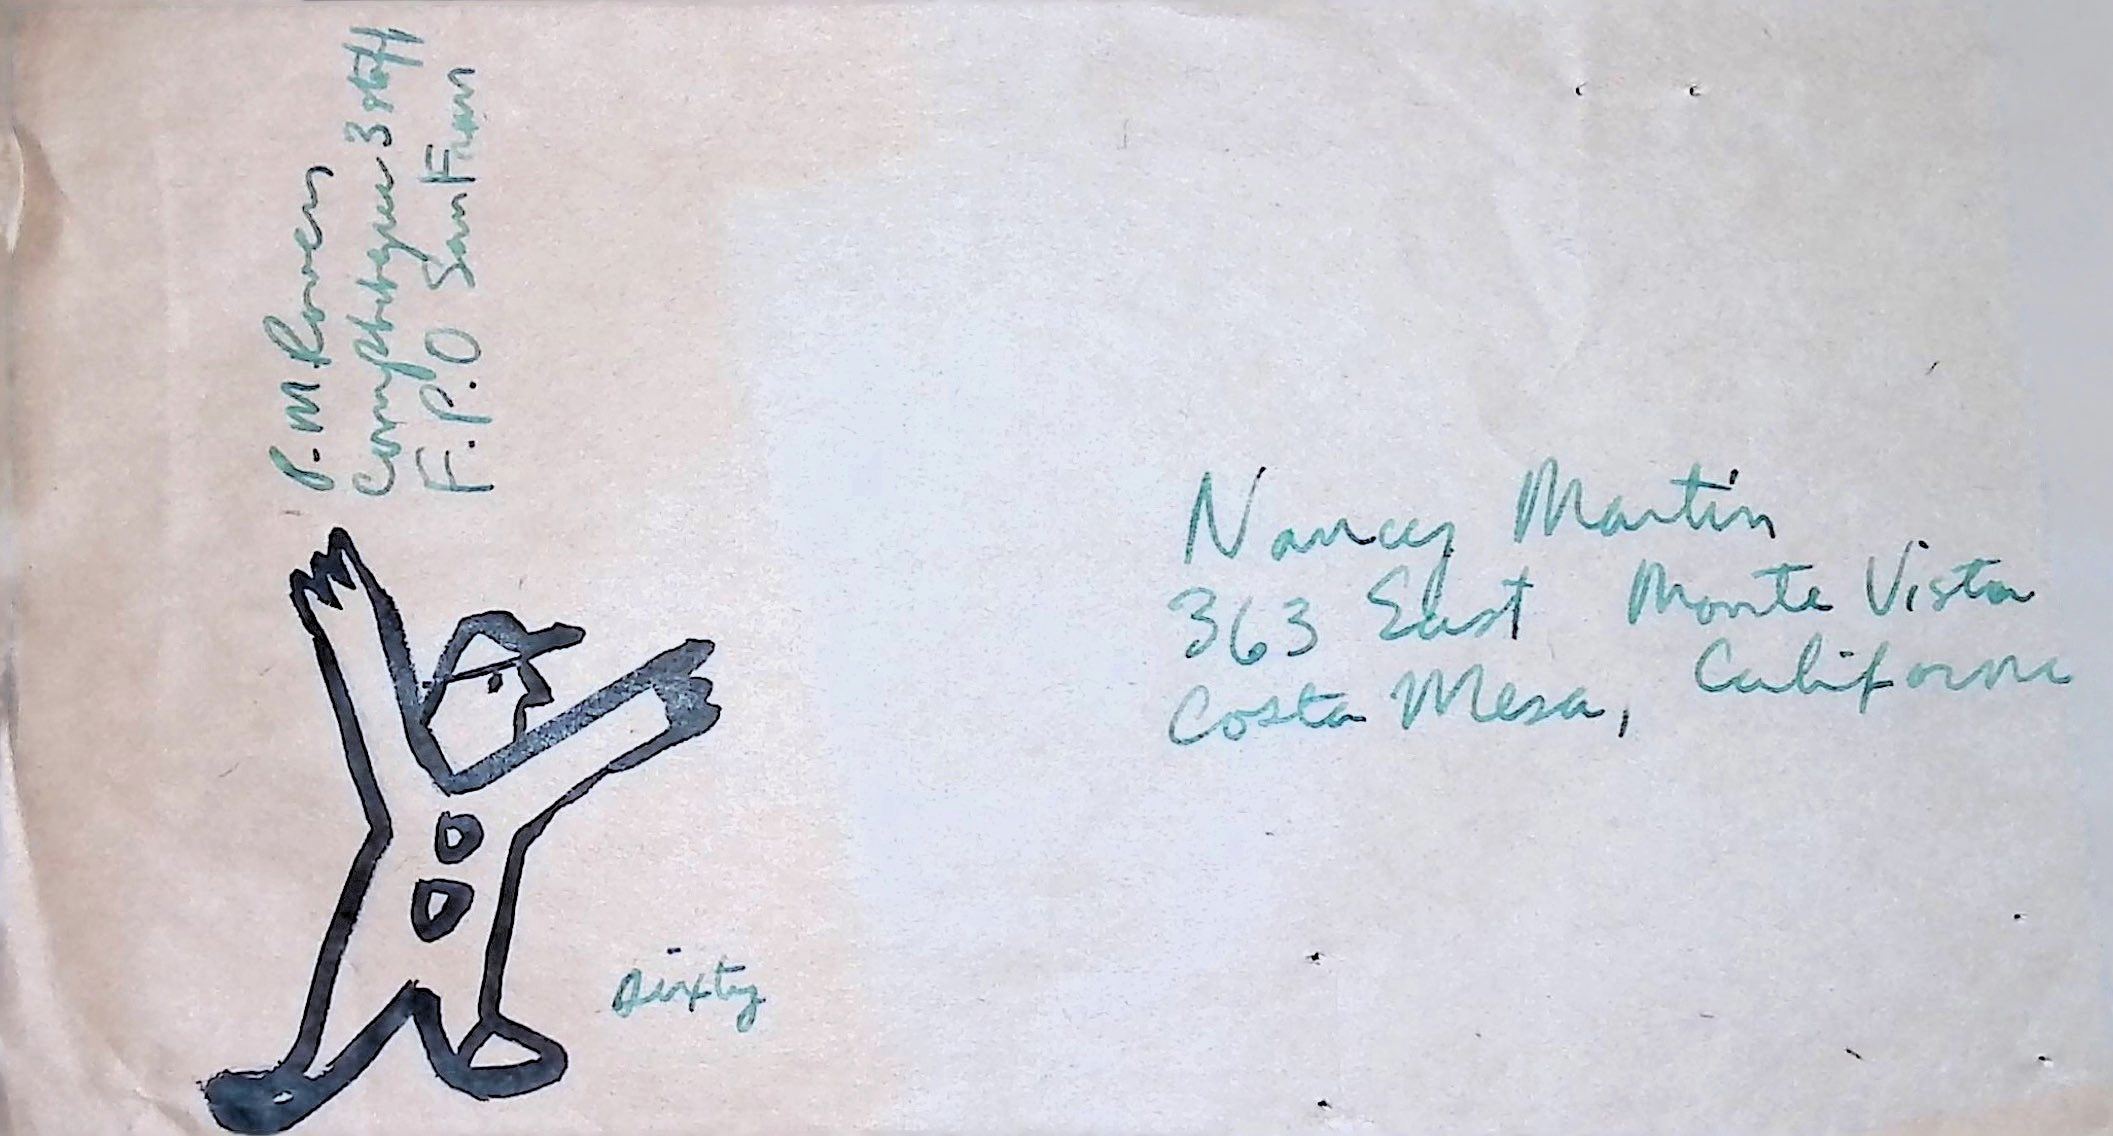 P. M Rowen
Comphibgru 3 staff
F.P.O San Fran
Nancy Martin
363 East Monte Vista
Costa Mesa, California
sixty